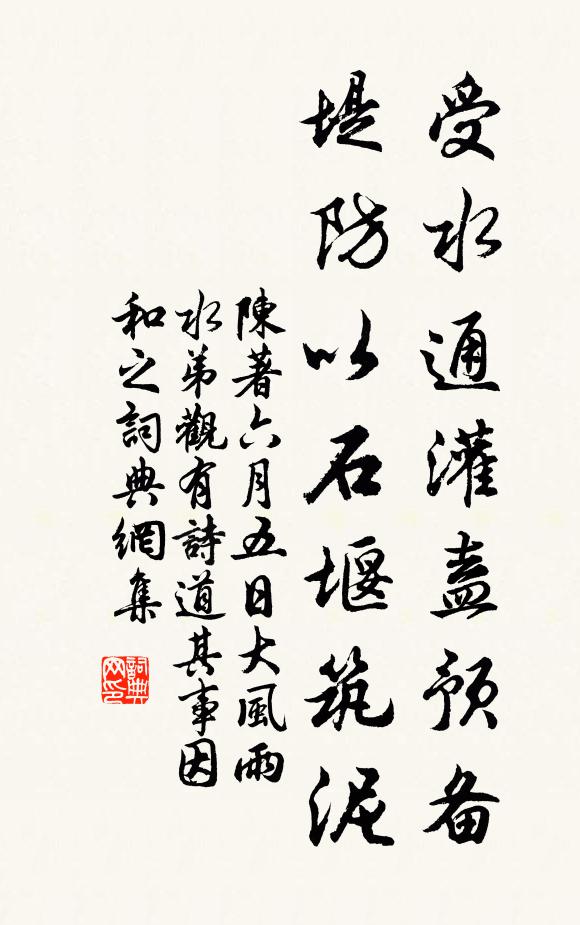 受水通灌盍预备
堤防以石堰筑泥
陳著六月五日大風雨
水弟觀有詩道其事因
和之詞典網集
詞典网印